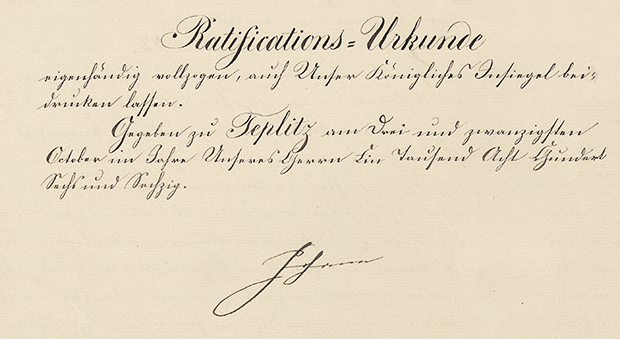 Ratifications=Urkunde
eigenhändig vollzogen, auch Unser Königliches Insiegel bei-
drucken lassen.
Gegeben zu Teplitz am Drei und zwanzigsten
October im Jahre Unseres Herrn Ein Tausend Acht Hundert
Sechs und Sechzig.
Johann